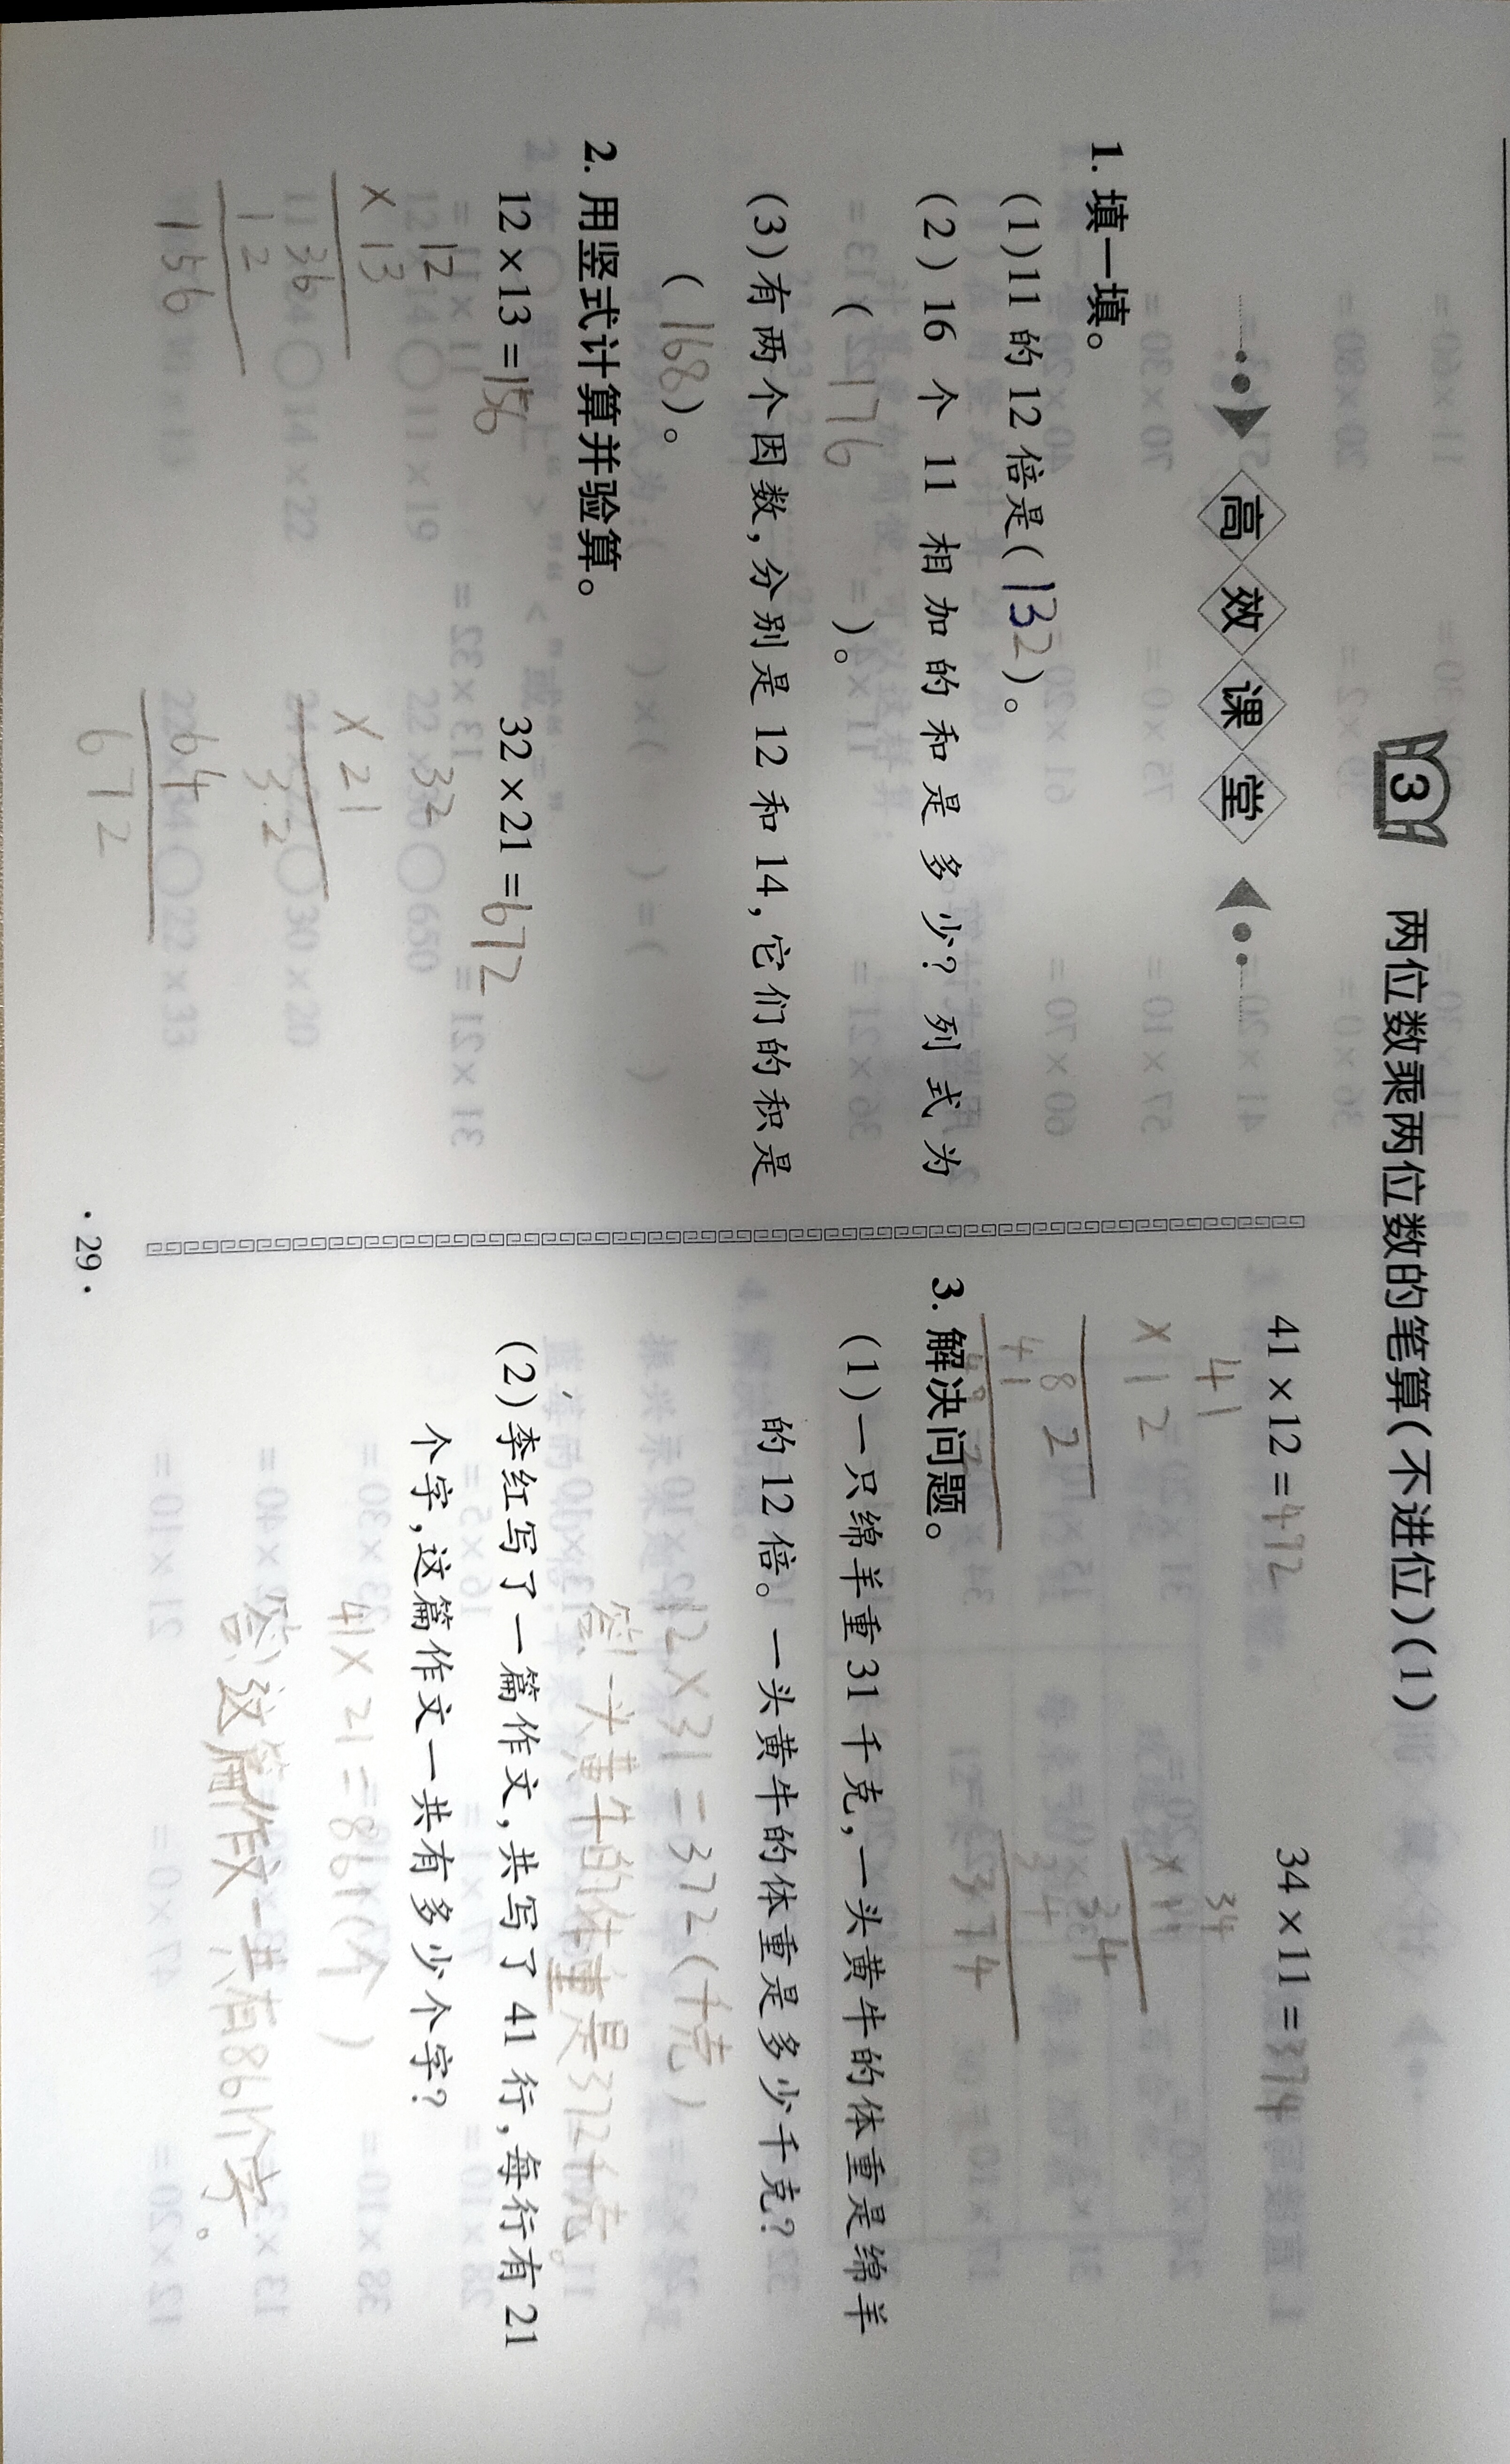 3 两位数乘两位数的笔算(不进位)(1)
高效课堂
1. 填一填。
(1)11 的 12 倍是(132)。
(2)16 个 11 相加的和是多少?列式为
( 176 )。
(3)有两个因数,分别是 12 和 14,它们的积是
(168)。
2. 用竖式计算并验算。
12×13=156
32×21=672
12
×13
36
12
156
32
×21
32
64
672
41×12=472
34×11=374
41
×12
82
41
34
×11
34
34
374
3. 解决问题。
(1)一只绵羊重 31 千克,一头黄牛的体重是绵羊
的 12 倍。一头黄牛的体重是多少千克?
12×31=372(千克)
答:一头黄牛的体重是372千克。
(2)李红写了一篇作文,共写了 41 行,每行有 21
个字,这篇作文一共有多少个字?
41×21=861(个)
答:这篇作文一共有861个字。
·29·